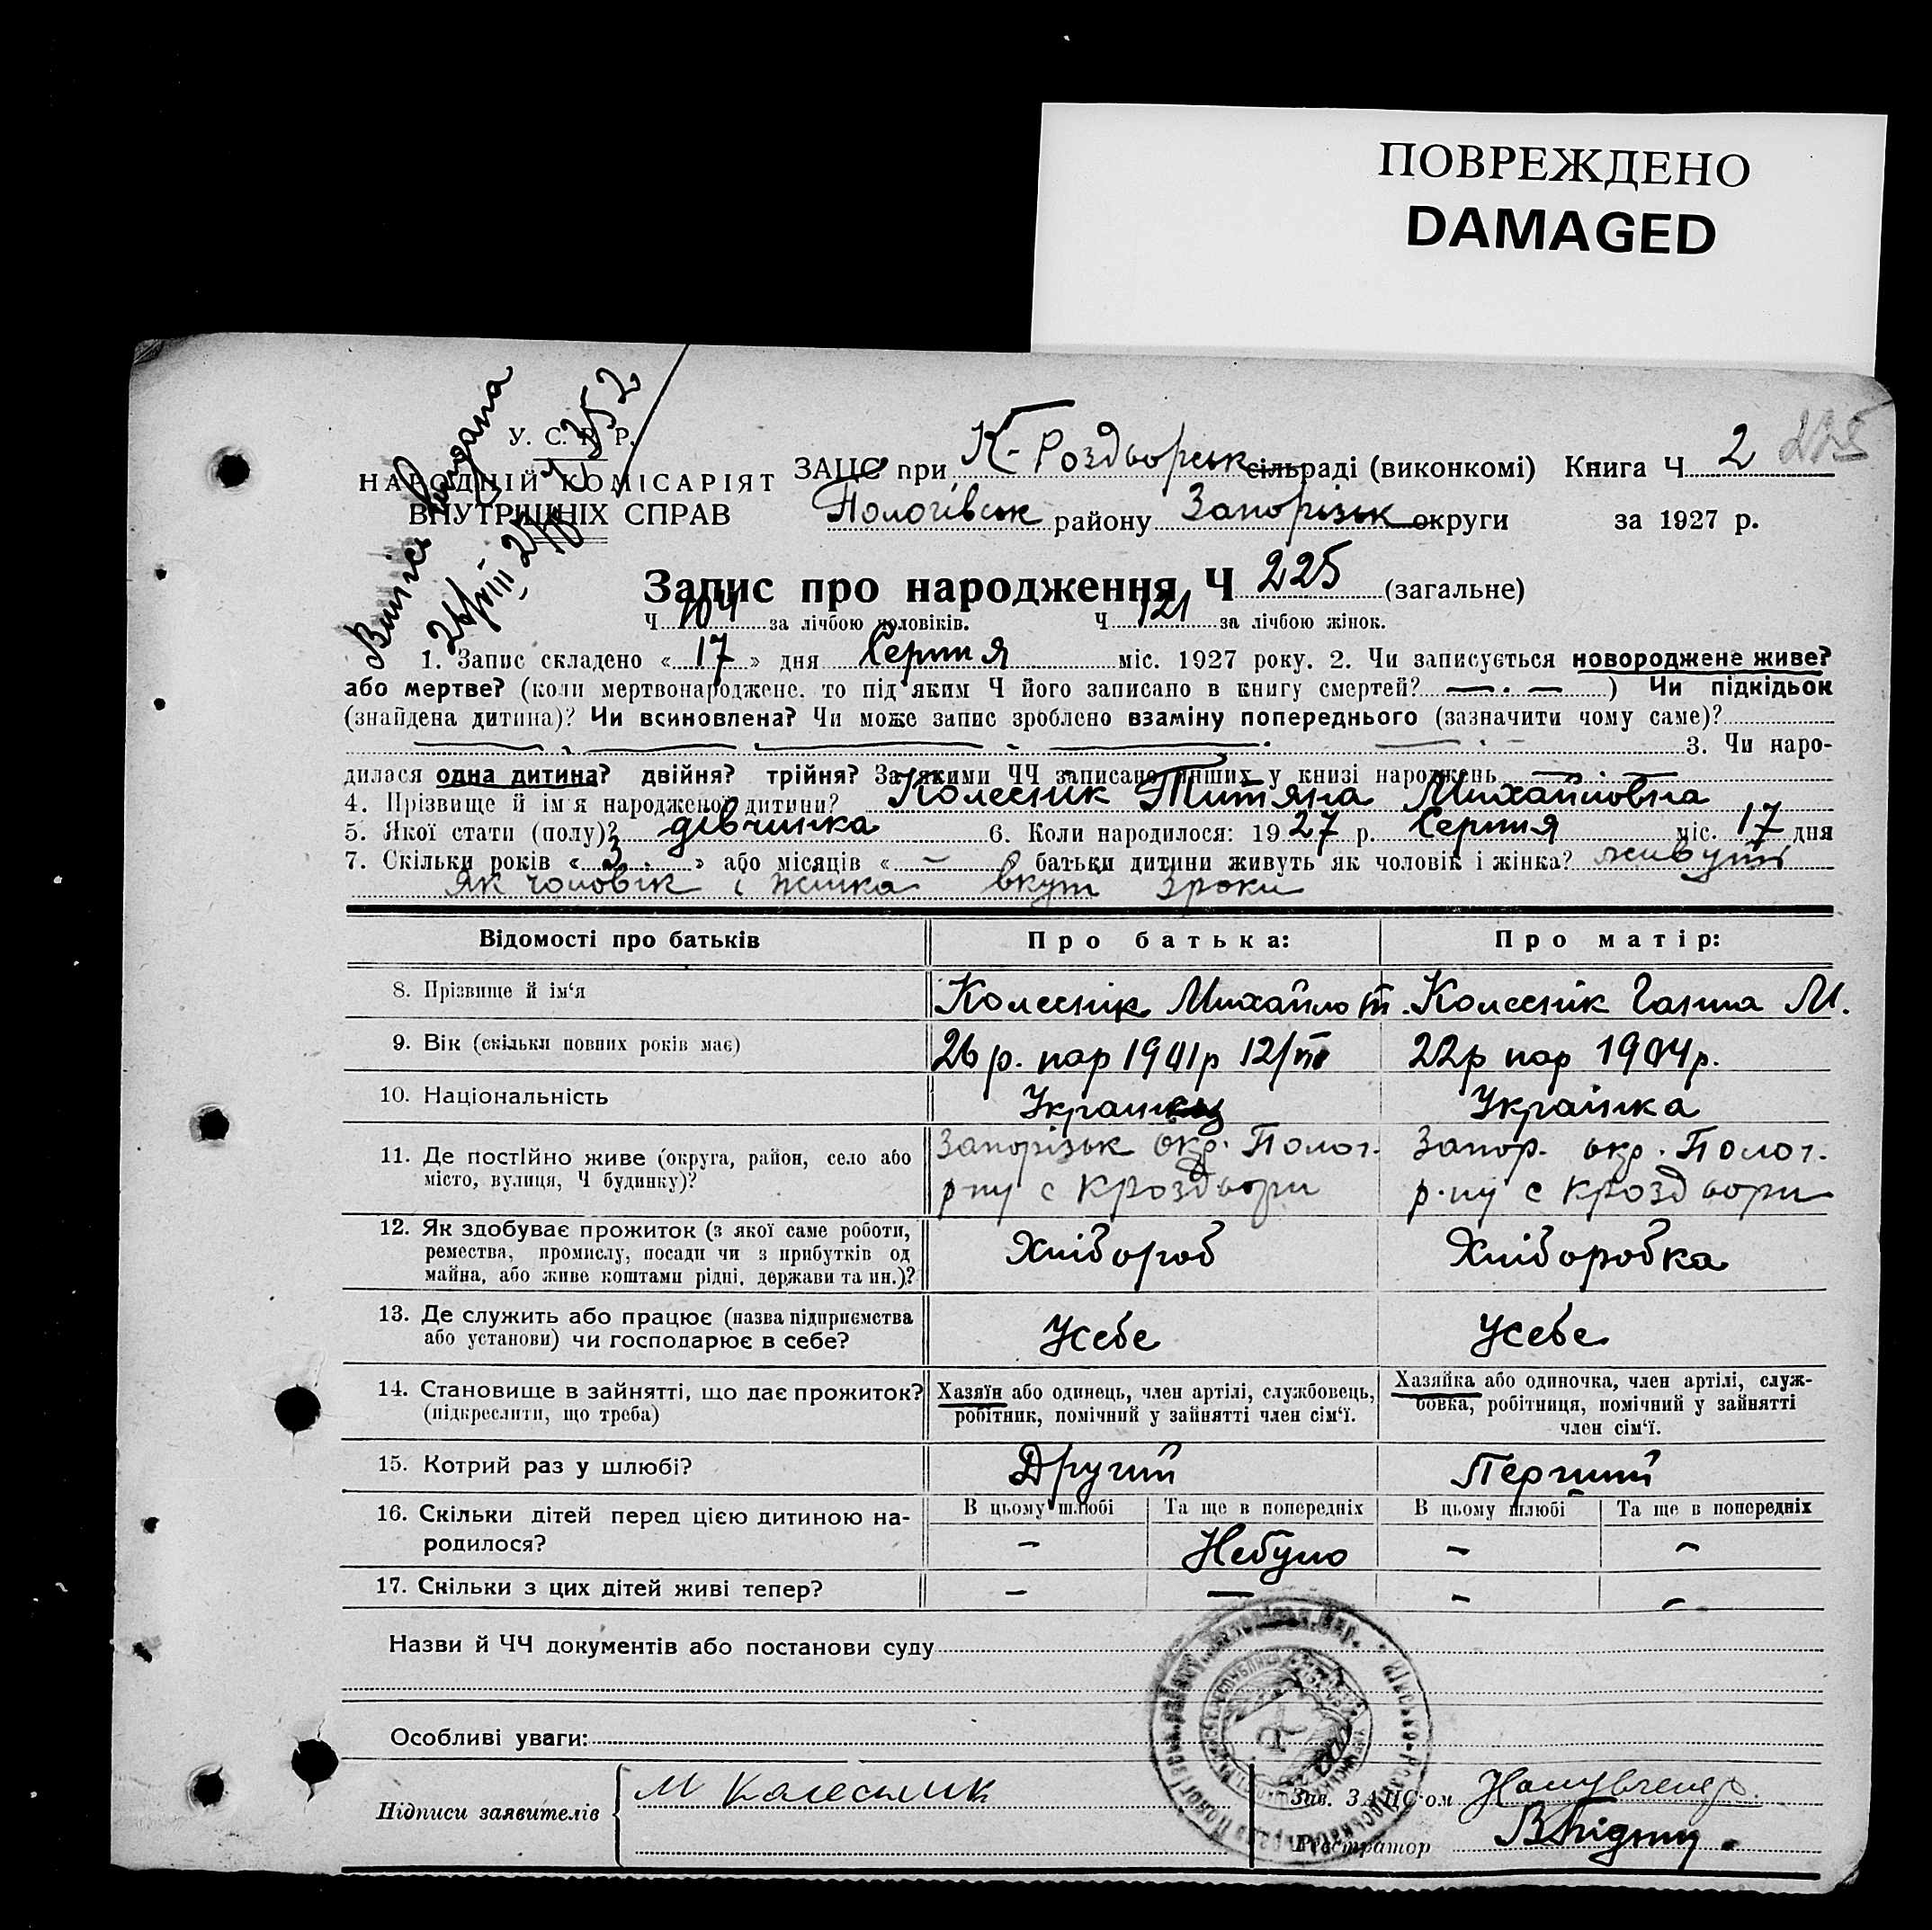 ПОВРЕЖДЕНО
DAMAGED
Випис видана
24/VIII 27 р
Ч 352
У. С. Р. Р.
НАРОДНІЙ КОМІСАРІЯТ
ВНУТРІШНІХ СПРАВ
ЗАЦС при К-Роздорськ сільраді (виконкомі) Книга Ч 2 225
Пологівськ району Запорізьк округи за 1927 р.
Запис про народження Ч 225 (загальне)
Ч 104 за лічбою чоловіків. Ч 121 за лічбою жінок.
1. Запис складено « 17 » дня Серпня міс. 1927 року. 2. Чи записується новороджене живе?
або мертве? (коли мертвонароджене, то під яким Ч його записано в книгу смертей? — . — ) Чи підкідьок
(знайдена дитина)? Чи всиновлена? Чи може запис зроблено взаміну попереднього (зазначити чому саме)?
3. Чи наро-
дилася одна дитина? двійня? трійня? За якими ЧЧ записано инших у книзі народжень — . —
4. Прізвище й ім'я народженої дитини? Колесник Титяна Михайловна
5. Якої стати (полу)? дівчинка 6. Коли народилося: 1927 р. Серпня міс. 17 дня
7. Скільки років « 3 » або місяців « – батьки дитини живуть як чоловік і жінка? живуть
як чоловік і жінка вкуп 3 роки
Відомості про батьків Про батька: Про матір:
8. Прізвище й ім‘я Колесник Михайло Т. Колесник Ганна М.
9. Вік (скільки повних років має) 26 р. нар 1901 р 12/VII 22 р нар 1904 р.
10. Національність Украинец Украінка
11. Де постІйно живе (округа, район, село або Запорізьк окр. Полог. Запор. окр. Полог.
місто, вулиця, Ч будинку)? р-ну с Кроздори р-ну с Кроздори
12. Як здобуває прожиток (з якої саме роботи,
ремества, промислу, посади чи з прибутків од Хлібороб Хліборобка
майна, або живе коштами рідні, держави та ин.)?
13. Де служить або працює (назва підприємства
або установи) чи господарює в себе? Усебе Усебе
14. Становище в зайнятті, що дає прожиток? Хазяїн або одинець, член артілі, службовець, Хазяйка або одиночка, член артілі, служ-
(підкреслити, що треба) робітник, помічний у зайнятті член сім‘ї. бовка, робітниця, помічний у зайнятті
член сім‘ї.
15. Котрий раз у шлюбі? Другий Перший
16. Скільки дітей перед цією дитиною на- В цьому шлюбі Та ще в попередніх В цьому шлюбі Та ще в попередніх
родилося? – Небуло – –
17. Скільки з цих дітей живі тепер? – – – –
Назви й ЧЧ документів або постанови суду
Особливі уваги:
Підписи заявителів М Калесник Зав. ЗАЦС-ом
Реєстратор